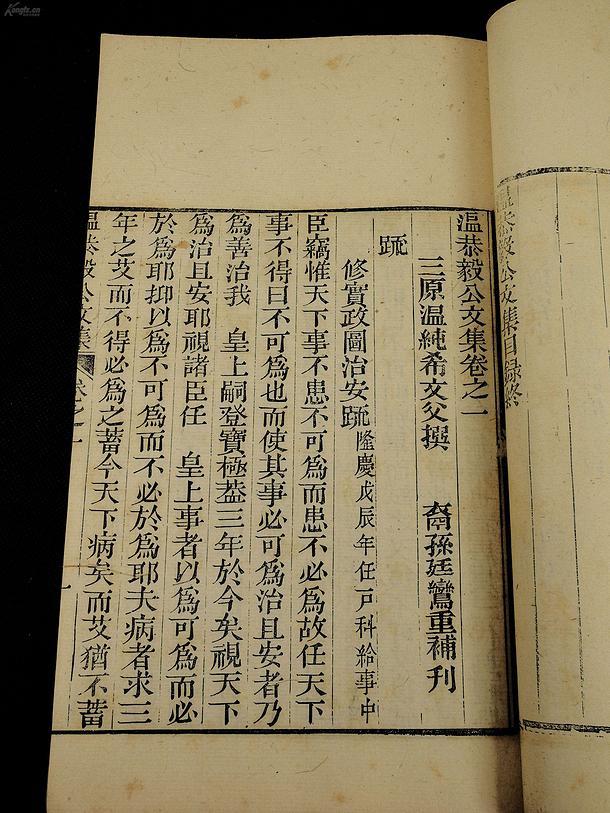 Kongfz.cn
温恭毅公文集目録終
温恭毅公文集卷之一
三原温純希文父撰 裔孫廷鸞重補刊
疏
修實政圖治安疏隆慶戊辰年任戸科給事中
臣竊惟天下事不患不可爲而患不必爲故任天下
事不得曰不可爲也而使其事必可爲治且安者乃
爲善治我 皇上嗣登寶極葢三年於今矣視天下
爲治且安耶視諸臣任 皇上事者以爲可爲而必
於爲耶抑以爲不可爲而不必於爲耶夫病者求三
年之艾而不得必爲之蓄今天下病矣而艾猶不蓄
温恭毅公文集 卷之一 一